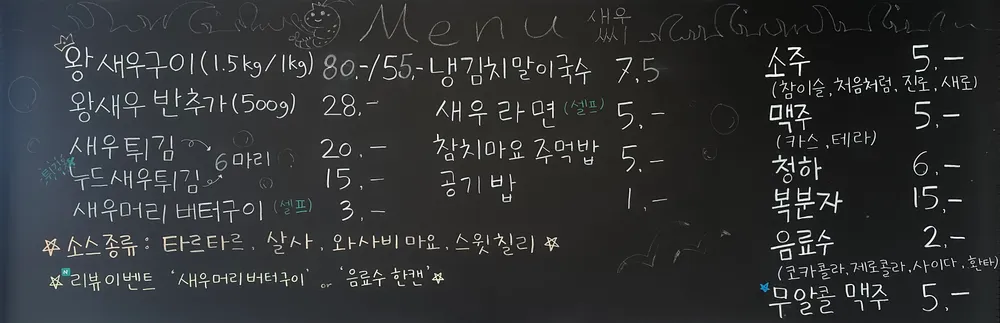 Menu 새우
왕새우구이(1.5kg/1kg) 80.-/55.-
왕새우 반추가(500g) 28.-
새우튀김 20.-
6마리
누드새우튀김 15.-
새우머리 버터구이 (셀프) 3.-
냉김치말이국수 7.5
새우라면 (셀프) 5.-
참치마요주먹밥 5.-
공기밥 1.-
☆소스종류: 타르타르, 살사, 와사비마요, 스윗칠리☆
☆N리뷰이벤트 '새우머리버터구이' or '음료수 한캔'☆
소주 5.-
(참이슬,처음처럼,진로,새로)
맥주 5.-
(카스,테라)
청하 6.-
복분자 15.-
음료수 2.-
(코카콜라,제로콜라,사이다,환타)
무알콜 맥주 5.-